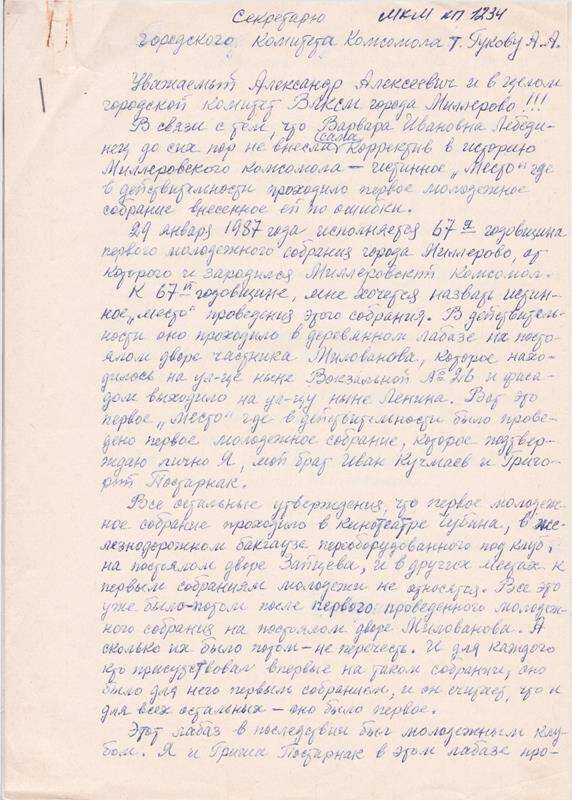 Секретарю МКМ КП 1234
городского комитета Комсомола т. Гукову А.А.
Уважаемый Александр Алексеевич и в целом
городской комитет ВЛКСМ города Миллерово!!!
В связи с тем, что Варвара Ивановна Лебеди-
нец до сих пор не внесла сама корректив в историю
Миллеровского комсомола — истинное „Место" где
в действительности проходило первое молодежное
собрание внесенное ей по ошибки.
29 января 1987 года исполняется 67я годовщина
первого молодежного собрания города Миллерово, от
которого и зародился Миллеровский Комсомол.
К 67ой годовщине, мне хочется назвать истин-
ное „место" проведения этого собрания. В действитель-
ности оно проходило в деревянном лабазе на посто-
ялом дворе частника Милованова, которое нахо-
дилось на ул-це ныне Вокзальной № 26 и фаса-
дом выходило на ул-цу ныне Ленина. Вот это
первое „Место" где в действительности было прове-
дено первое молодежное собрание, которое подтвер-
ждаю лично Я, мой брат Иван Кучмаев и Григо-
рий Постарнак.
Все остальные утверждения, что первое молодеж-
ное собрание проходило в кинотеатре Чубина, в же-
лезнодорожном бакгаузе переоборудованного под клуб,
на постоялом дворе Зайцева, и в других местах к
первым собраниям молодежи не относятся. Все это
уже было-потом после первого проведенного молодеж-
ного собрания на постоялом дворе Милованова. А
сколько их было потом — не перечесть. И для каждого
кто присутствовал впервые на таком собрании, оно
было для него первым собранием, и он считает, что и
для всех остальных — оно было первое.
Этот лабаз в последствии был молодежным клу-
бом. Я и Гриша Постарнак в этом лабазе про-